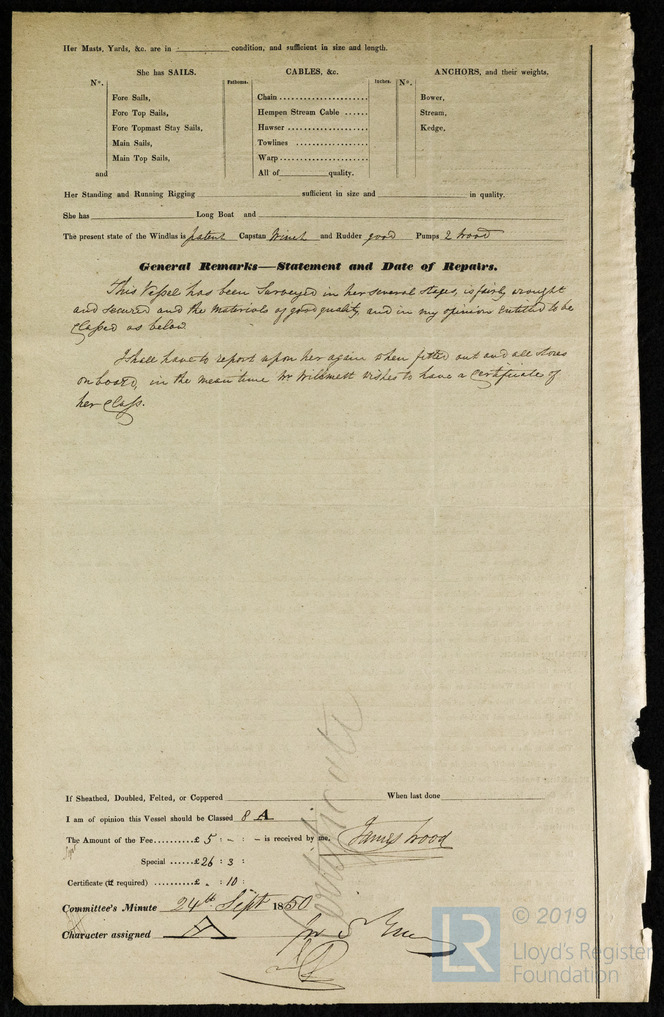 Her Masts, Yards, &c. are in condition, and sufficient in size and length.
She has SAILS. CABLES, &c. ANCHORS, and their weights.
N°. Fathoms. Inches. N°.
Fore Sails, Chain Bower,
Fore Top Sails, Hempen Stream Cable Stream,
Fore Topmast Stay Sails, Hawser Kedge,
Main Sails, Towlines
Main Top Sails, Warp
and All of quality.
Her Standing and Running Rigging sufficient in size and in quality.
She has Long Boat and
The present state of the Windlass is patent Capstan Winch and Rudder good Pumps 2 Wood
General Remarks—Statement and Date of Repairs.
This Vessel has been Surveyed in her several stages, is fairly wrought
and secured and the materials of good quality, and in my opinion Entitled to be
Classed as below
I shall have to report upon her again when fitted out and all stores
on board, in the mean time Mr Wilsmett wishes to have a Certificate of
her Class.
If Sheathed, Doubled, Felted, or Coppered When last done
I am of opinion this Vessel should be Classed 8 A
The Amount of the Fee......£ 5 : - : - is received by me, James Wood
Special ........£ 26 : 3 :
Certificate (if required) .........£ . : 10 :
Certificate
Committee's Minute 24th Sept 1850
Character assigned A
© 2019
LR
Lloyd's Register
Foundation